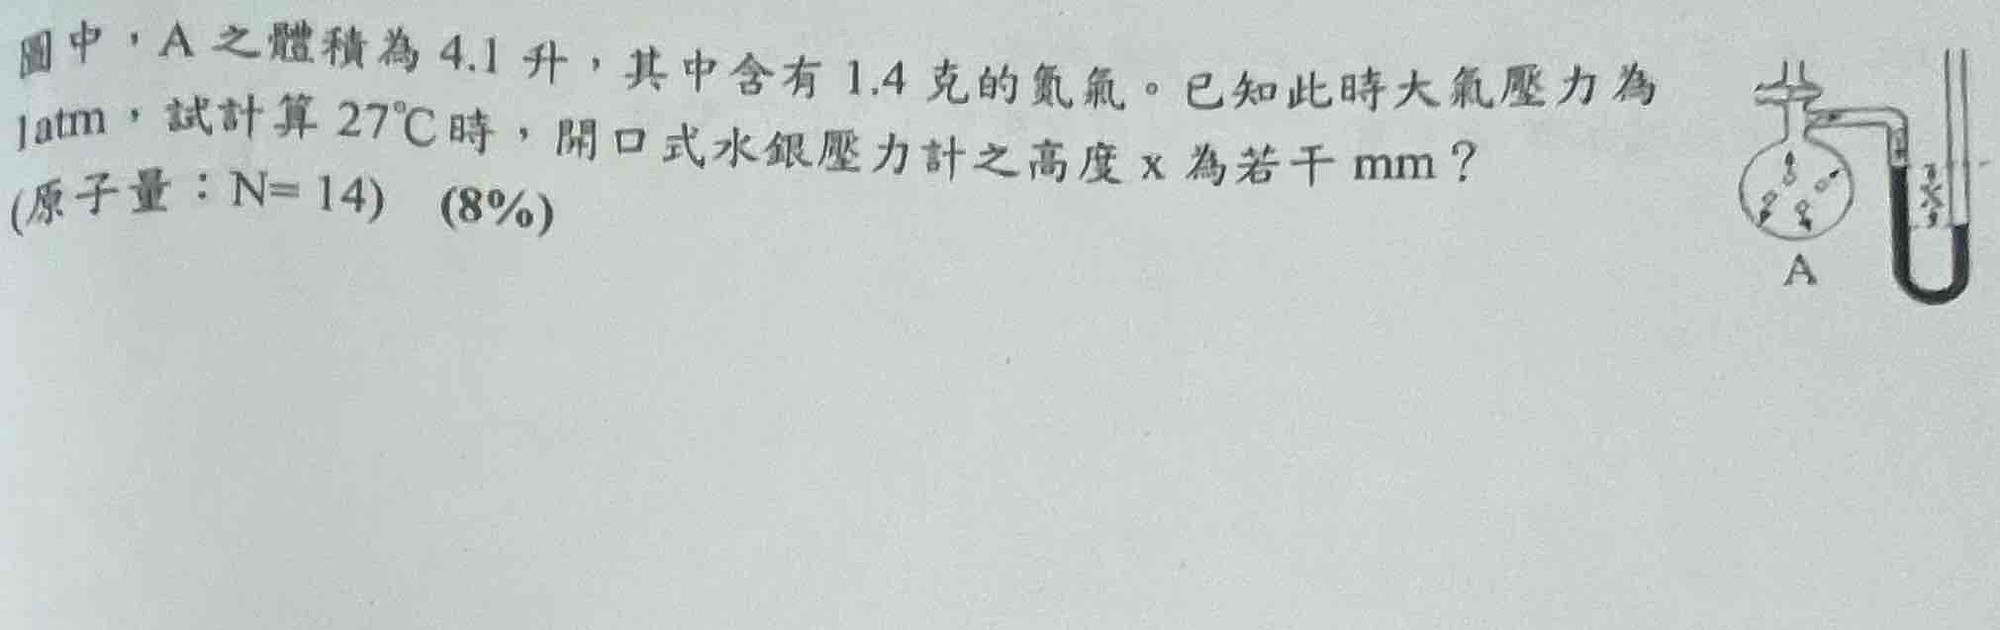 圖中，A 之體積為 4.1 升，其中含有 1.4 克的氮氣。已知此時大氣壓力為
1atm，試計算 27℃時，開口式水銀壓力計之高度 x 為若干 mm？
(原子量：N= 14) (8%)
x
A